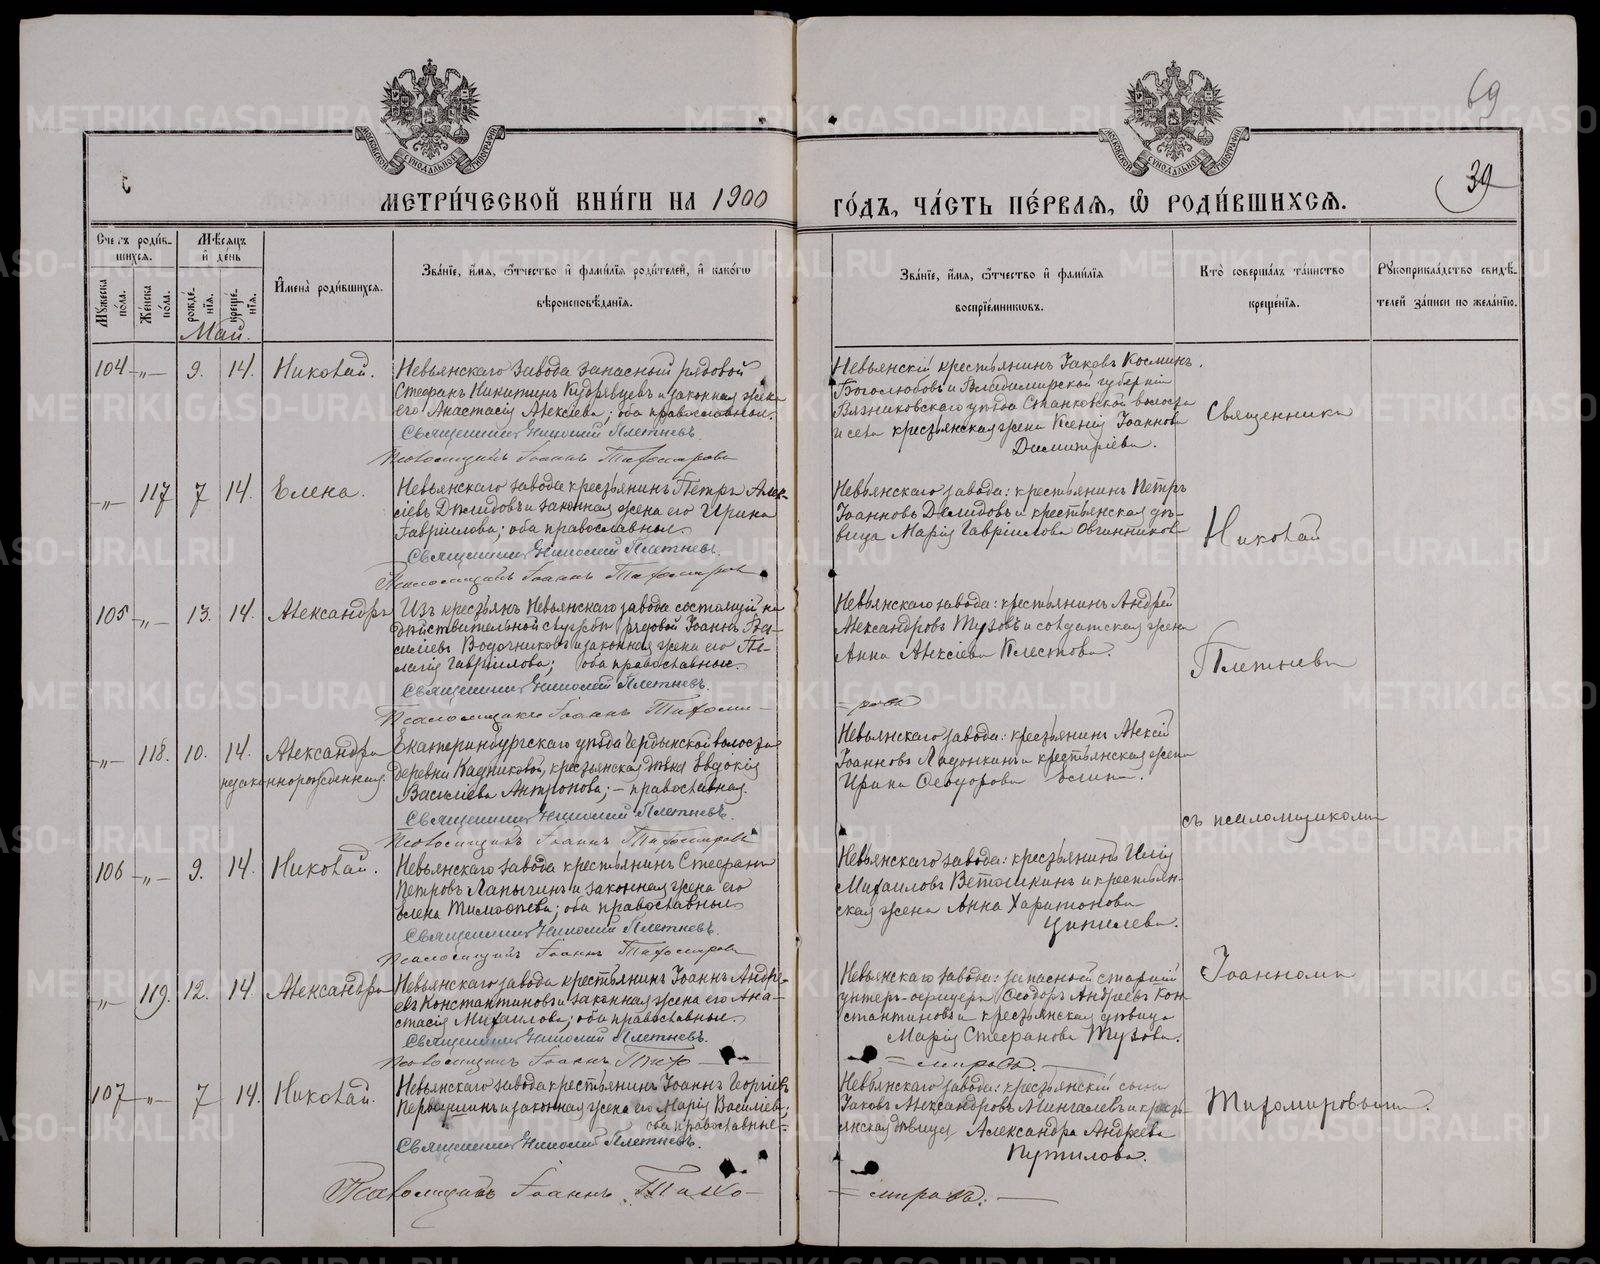 69
39
МЕТРИ́ЧЕСКОЙ КНИ́ГИ НА 1900
ГО́ДЪ, ЧА́СТЬ ПЕ́РВАЯ, Ѽ РОДИ́ВШИХСЯ.
Счетъ роди́вшихся.
Мѣ́сяцъ и́ де́нь
И́мена̀ роди́вшихся.
Зва́нїе, и́мя, ѻ́тчество и́ фами́лїя роди́телей, и́ како́гѡ вѣроисповѣ́данїя.
Зва́нїе, и́мя, ѻ́тчество и́ фами́лїя воспрїе́мникѡвъ.
Кто̀ соверша́лъ та́инство креще́нїя.
Рꙋкоприкла́дство свидѣ́телей за́писи по жела́нїю.
Мꙋ́жеска по́ла.
Же́нска по́ла.
рожде́нїя.
креще́нїя.
Май.
104 -„- 9. 14. Николай.
Невьянскаго завода запасный рядовой
Стефанъ Никитинъ Кудрявцевъ и законная жена
его Анастасія Алексіева; оба православные.
Священникъ Николай Плетневъ.
Псаломщикъ Іоаннъ Тихомировъ
Невьянскій крестьянинъ Іаковъ Косминъ
Боголюбовъ и Владимирской губерніи
Вязниковскаго уѣзда Станковской волости
и села крестьянская жена Ксенія Іоаннова
Димитріева.
Священникъ
-„- 117 7 14. Елена.
Невьянскаго завода крестьянинъ Петръ Алек-
сіевъ Демидовъ и законная жена его Ирина
Гавріилова; оба православные.
Священникъ Николай Плетневъ.
Псаломщикъ Іоаннъ Тихомировъ
Невьянскаго завода: крестьянинъ Петръ
Іоанновъ Демидовъ и крестьянская дѣ-
вица Марія Гавріилова Овчинникова
Николай
105 -„- 13. 14. Александръ
Изъ крестьянъ Невьянскаго завода состоящій на
дѣйствительной службѣ рядовой Іоаннъ Ва-
силіевъ Водочниковъ и законная жена его Пе-
лагія Гавріилова; оба православные.
Священникъ Николай Плетневъ.
Псаломщикъ Іоаннъ Тихоми-
Невьянскаго завода: крестьянинъ Андрей
Александровъ Тузовъ и солдатская жена
Анна Алексіева Плестова.
=ровъ
Плетневъ
-„- 118. 10. 14. Александра
незаконнорожденная.
Екатеринбургскаго уѣзда волости
деревни Кадниковой, крестьянская дѣвка Евдокія
Василіева Антропова; - православная.
Священникъ Николай Плетневъ.
Псаломщикъ Іоаннъ Тихомировъ
Невьянскаго завода: крестьянинъ Алексій
Іоанновъ и крестьянская жена
Ирина Ѳеодорова
съ псаломщикомъ
106 -„- 9. 14. Николай.
Невьянскаго завода крестьянинъ Стефанъ
Петровъ Лапычинъ и законная жена его
Елена Тимоѳеева; оба православные
Священникъ Николай Плетневъ.
Псаломщикъ Іоаннъ Тихомировъ
Невьянскаго завода: крестьянинъ Илія
Михаиловъ Ветошкинъ и крестьян-
ская жена Анна Харитонова
Цепилева.
Іоанномъ
-„- 119. 12. 14. Александра
Невьянскаго завода крестьянинъ Іоаннъ Андре-
евъ Константиновъ и законная жена его Ана-
стасія Михаилова; оба православные.
Священникъ Николай Плетневъ.
Псаломщикъ Іоаннъ Тихо-
Невьянскаго завода: запасной старшій
унтеръ-офицеръ Ѳеодоръ Андреевъ Кон-
стантиновъ и крестьянская дѣвица
Марія Стефанова Тузова.
=мировъ.
107 -„- 7 14. Николай.
Невьянскаго завода крестьянинъ Іоаннъ Георгіевъ
Первушинъ и законная жена его Марія Василіева;
оба православные.
Священникъ Николай Плетневъ.
Псаломщикъ Іоаннъ Тихо-
Невьянскаго завода: крестьянскій сынъ
Іаковъ Александровъ Мингалевъ и кресть-
янская дѣвица Александра Андреева
Путилова.
=мировъ.
Тихомировымъ.
METRIKI.GASO-URAL.RU